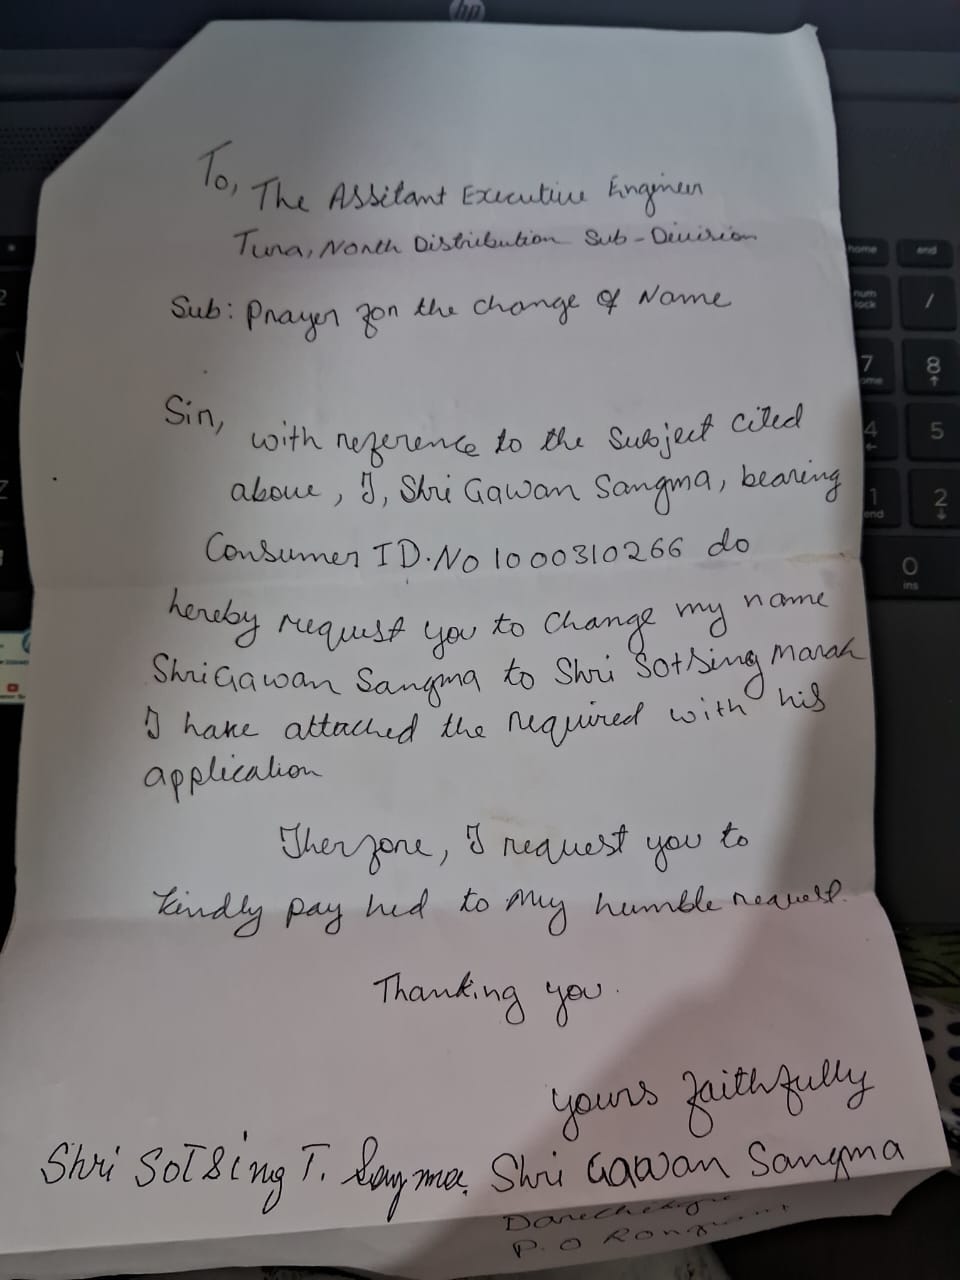 hp
To,
The Assitant Executive Engineer
Tura, North Distribution Sub-Division
Sub: Prayer for the change of Name
Sir,
with reference to the subject cited
above, I, Shri Gawan Sangma, bearing
Consumer ID.No 1000310266 do
hereby request you to change my name
Shri Gawan Sangma to Shri Sotsing Marak
I have attached the required with his
application
Therfore, I request you to
kindly pay hed to my humble request.
Thanking you.
yours faithfully
Shri Sotsing T. Sangma. Shri Gawan Sangma
P.O
home end
num lock /
7 8
4 5
1 end 2
0 ins